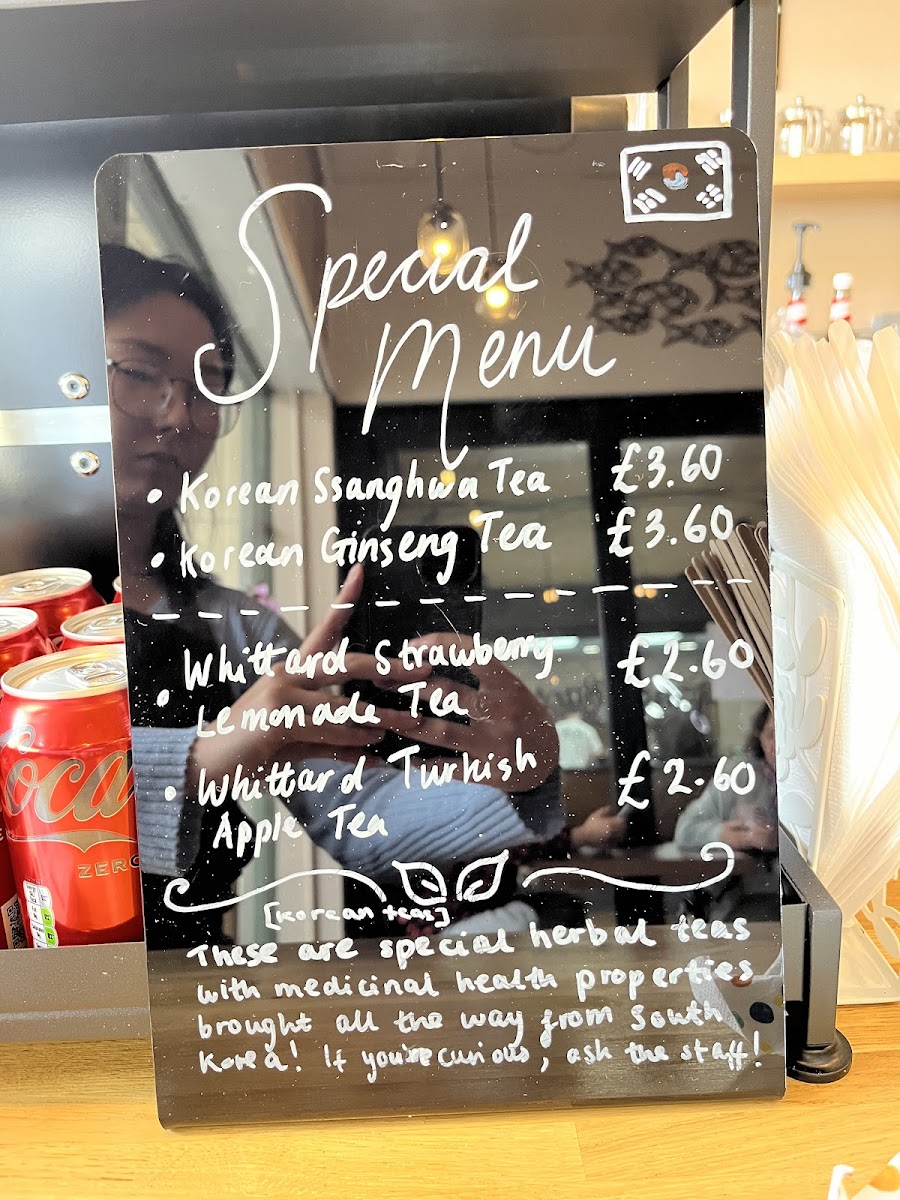 Special
Menu
• Korean Ssanghwa Tea £3.60
• Korean Ginseng Tea £3.60
• Whittard Strawberry £2.60
Lemonade Tea
• Whittard Turkish £2.60
Apple Tea
[Korean teas]
These are special herbal teas
with medicinal health properties
brought all the way from South
Korea! If you're curious, ask the staff!
oca
ZERO